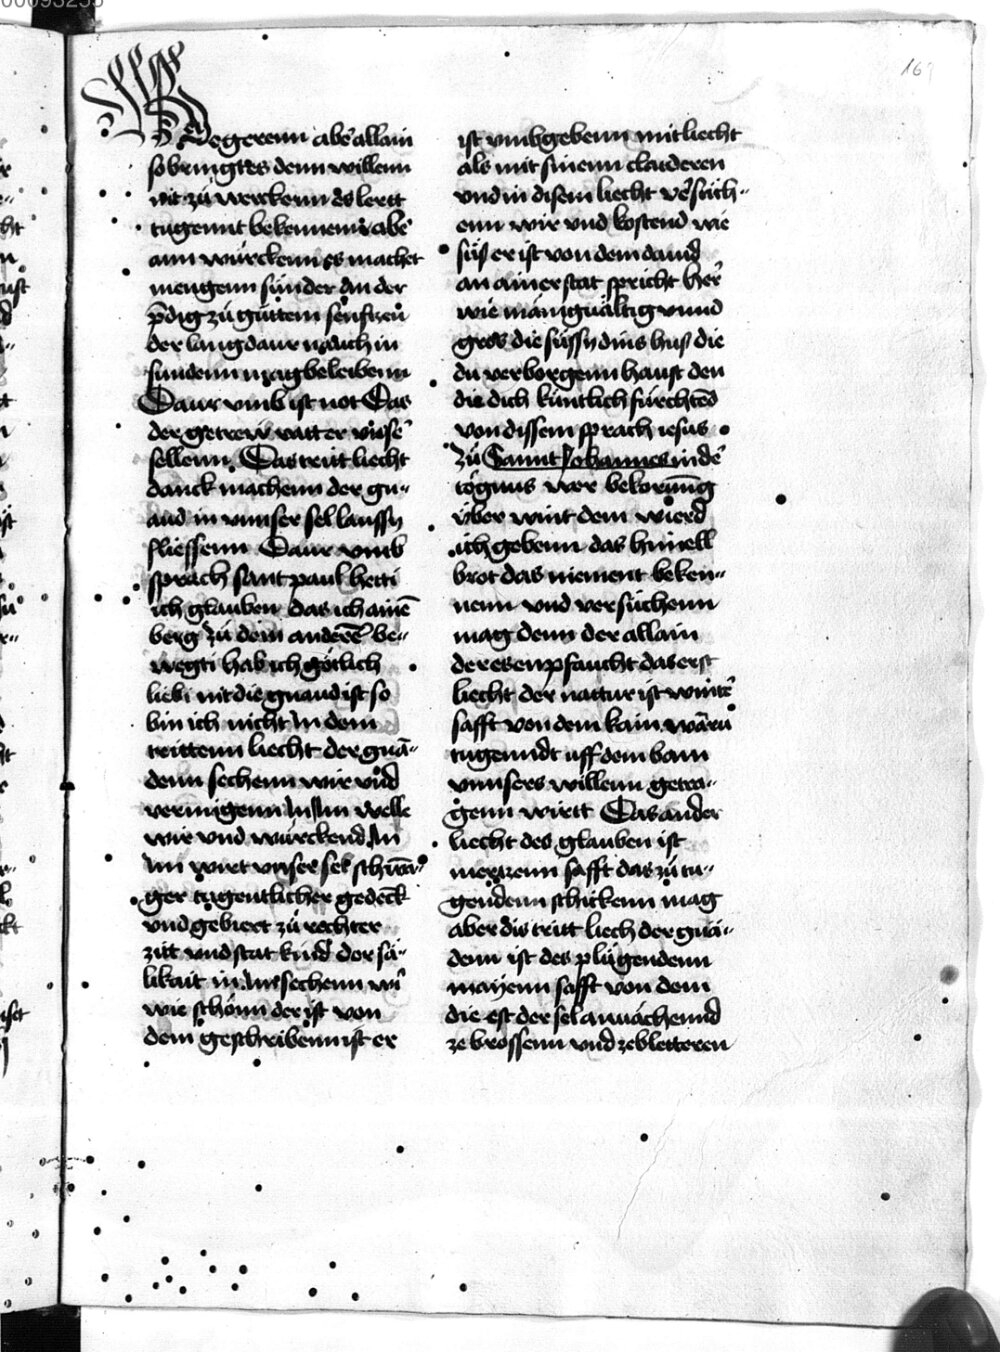 00093255
169
Begerenn aber allain
so bringt es denn willenn
nit zů werckenn es lertt
tugennt bekennenn aber
ann würckenn es machet
mengenn sünder An der
p̄dig zů gůttem senftzen
der lang daur nauch in
sündenn mag beleibenn
Daur vmb ist not Das
der getrew vatter vnse
sellenn Das tritt liecht
danck machenn der gn⸗
aud in vnnser sel laussy
fliessenn Daur vmb
sprach sant paul hetti
ich glauben das ich ainē
berg zů dem anderē be⸗
wegti hab ich götlich
liebi nit die gnaud ist so
bin ich nicht In dem
trittenn liecht der gnā⸗
denn sechenn wir vnd
vermigenn In Im welle
wir vnd würckend In
Im wirt vnser sel schwā⸗
ger tugentlicher gedēck
vnd gebiert zů rechter
zitt vnd stat kind der sä⸗
likait in Im sechenn wir
wie schönn der ist von
dem geschribenn ist er
ist vmbgebenn mit liecht
als mit sinenn claideren
vnd in disem liecht versůch⸗
enn wir vnd kostend wie
süss er ist von dem dauid
an ainer stat spricht her
wie manigualtig vnnd
gros die süssy dins hus die
du verborgenn haust den
die dich küntlich fürchtēd
von dissem sprach iesus
zů Sannt Johannes in de
tögnus wer bekorūng
über wint dem wierd
ich gebenn das himell
brot das niement beken⸗
nenn vnd versůchenn
mag denn der allain
der es enpfaucht das erst
liecht der nattur ist winter
safft von dem kain wāru
tugenndt uff dem bam
vnnsers willenn getra⸗
genn wirtt Das ander
liecht des glauben ist
mertzenn safft das zů tu⸗
gendenn schickenn mag
aber dis tritt liech der gnā⸗
denn ist des plügendenn
mayenn safft von dem
die est der sel anuächennd
ze brossenn vnd ze bletteren